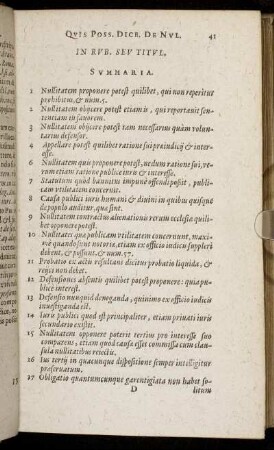 QVIS POSS. DICE. DE NVL. 41
IN RVB. SEV TITVL.
SVMMARIA.
1 Nullitatem proponere potest quilibet, qui non reperitur
prohibitus, & num. 5.
2 Nullitatem obijcere potest etiam is, qui reportauit sen-
tentiam in fauorem.
3 Nullitatem obijcere potest tam necessarius quàm volun-
tarius defensor.
4 Appellare potest quilibet ratione sui preiudicij & inter-
esse.
6 Nullitatem quis proponere potest, nedum ratione sui, ve-
rum etiam ratione publice iuris & interesse.
7 Statutum quòd bannitus impunè offendi possit, publi-
cam vtilitatem concernit.
8 Causa publici iuris humani & diuini in quibus quisque
de populo auditur, que sint.
9 Nullitatem contractus alienationis rerum ecclesiæ quili-
bet opponere potest.
10 Nullitates quæ publicam vtilitatem concernunt, maxi-
mè quando sunt notoria, etiam ex officio iudicis suppleri
debent, & possunt, & num. 57.
11 Probatio ex actu resultans dicitur probatio liquida, &
regici non debet.
12 Defensiones absentis quilibet potest proponere: quia pu-
blicè interest.
13 Defensio nunquid deneganda, quinimo ex officio iudicis
inuestiganda est.
14 Iuri publici quod est principaliter, etiam priuati iuris
secundariò existit.
15 Nullitatem opponere poterit tertius pro interesse suo
comparens, etiam quòd causa esset commissa cum clau-
sula nullitatibus reiectis.
16 Ius tertij in quacunque dispositione semper intelligitur
præseruatum.
17 Obligatio quantumcunque garentigiata non habet so-
D litum